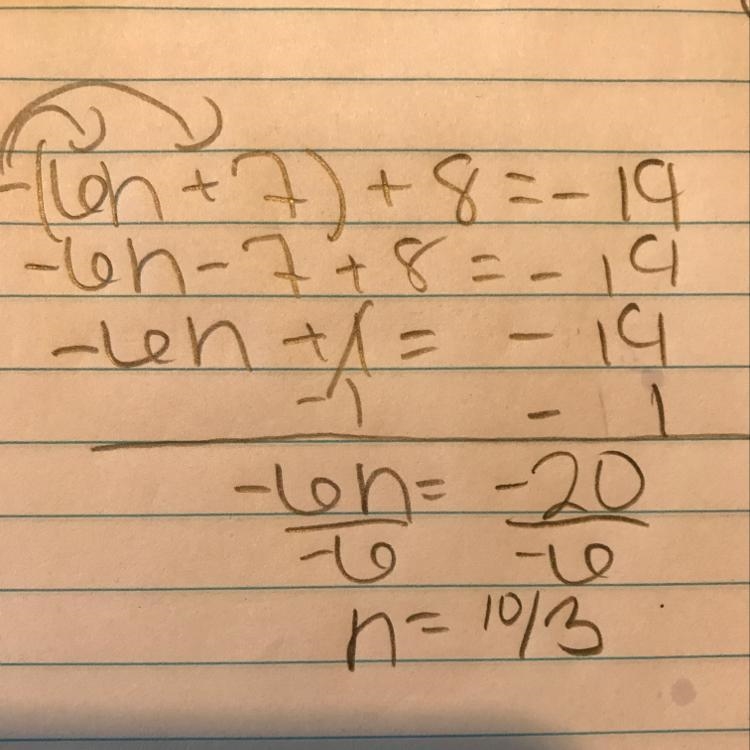 -(6n + 7) + 8 = - 19
-6n - 7 + 8 = - 19
-6n + 1 = - 19
-1 - 1
-6n = -20
-6 -6
n = 10/3